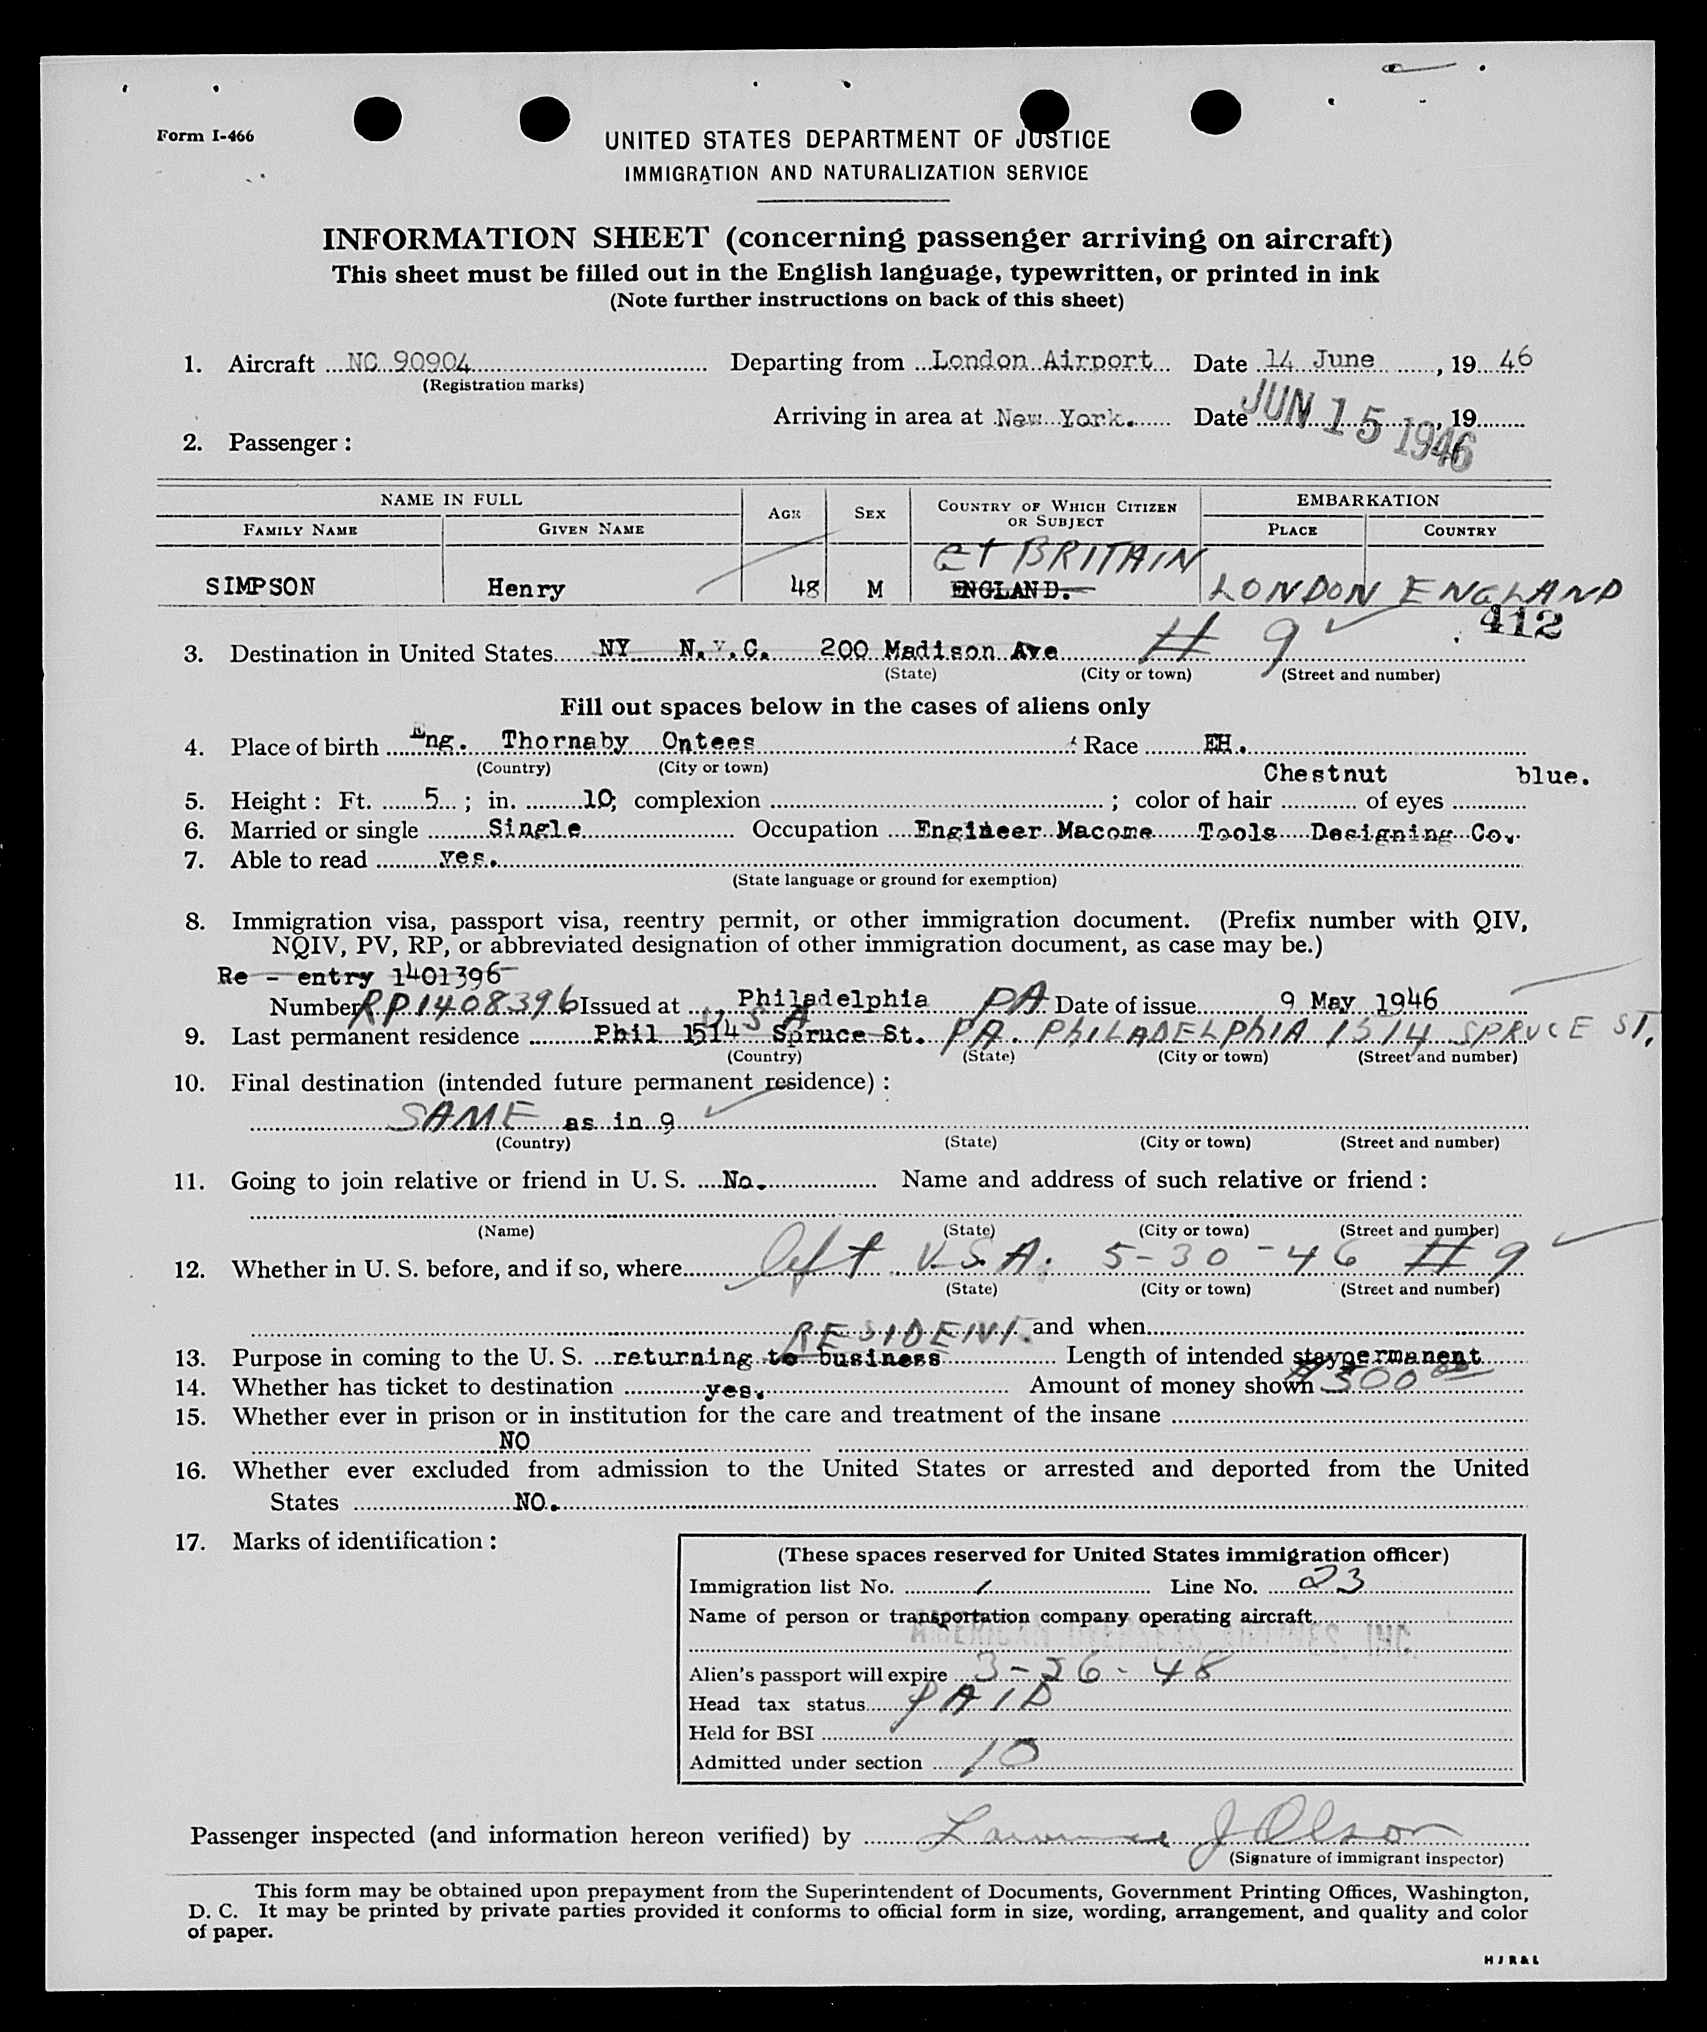 Form I-466
UNITED STATES DEPARTMENT OF JUSTICE
IMMIGRATION AND NATURALIZATION SERVICE
INFORMATION SHEET (concerning passenger arriving on aircraft)
This sheet must be filled out in the English language, typewritten, or printed in ink
(Note further instructions on back of this sheet)
1. Aircraft NC 90904 Departing from London Airport Date 14 June, 19 46
(Registration marks)
Arriving in area at New York. Date JUN 15 1946, 19
2. Passenger :
NAME IN FULL AGE SEX COUNTRY OF WHICH CITIZEN OR SUBJECT EMBARKATION
FAMILY NAME GIVEN NAME PLACE COUNTRY
Gt BRITAIN
SIMPSON Henry 48 M ENGLAND. LONDON ENGLAND
412
3. Destination in United States NY N.Y.C. 200 Madison Ave # 9
(State) (City or town) (Street and number)
Fill out spaces below in the cases of aliens only
4. Place of birth Eng. Thornaby Ontees Race EH.
(Country) (City or town)
Chestnut blue.
5. Height : Ft. 5 ; in. 10; complexion ; color of hair of eyes
6. Married or single Single Occupation Engineer Macome Tools Designing Co.
7. Able to read yes.
(State language or ground for exemption)
8. Immigration visa, passport visa, reentry permit, or other immigration document. (Prefix number with QIV,
NQIV, PV, RP, or abbreviated designation of other immigration document, as case may be.)
Re - entry 1401396
Number RP1408396 Issued at Philadelphia PA Date of issue 9 May 1946
9. Last permanent residence Phil 1514 Spruce St. USA PA. PHILADELPHIA 1514 SPRUCE ST.
(Country) (State) (City or town) (Street and number)
10. Final destination (intended future permanent residence) :
SAME as in 9
(Country) (State) (City or town) (Street and number)
11. Going to join relative or friend in U. S. No. Name and address of such relative or friend :
(Name) (State) (City or town) (Street and number)
12. Whether in U. S. before, and if so, where left U.S.A. 5-30-46 # 9
(State) (City or town) (Street and number)
RESIDENT. and when
13. Purpose in coming to the U. S. returning to business Length of intended stay permanent
14. Whether has ticket to destination yes. Amount of money shown $500 00
15. Whether ever in prison or in institution for the care and treatment of the insane
NO
16. Whether ever excluded from admission to the United States or arrested and deported from the United
States NO.
17. Marks of identification :
(These spaces reserved for United States immigration officer)
Immigration list No. 1 Line No. 23
Name of person or transportation company operating aircraft
AMERICAN OVERSEAS AIRLINES, INC.
Alien's passport will expire 3-26-48
Head tax status PAID
Held for BSI
Admitted under section 10
Passenger inspected (and information hereon verified) by Lawrence J Olson
(Signature of immigrant inspector)
This form may be obtained upon prepayment from the Superintendent of Documents, Government Printing Offices, Washington,
D. C. It may be printed by private parties provided it conforms to official form in size, wording, arrangement, and quality and color
of paper.
HJR&L